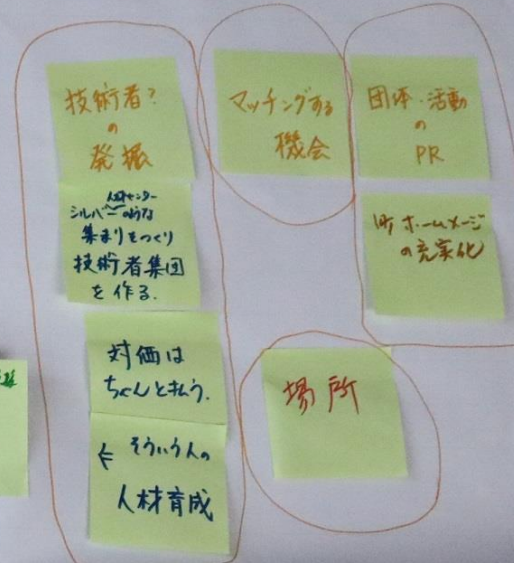 技術者?
の
発掘
人材センター
シルバーのような
集まりをつくり
技術者集団
を作る.
対価は
ちゃんと払う.
← そういう人の
人材育成
マッチングする
機会
団体・活動
の
PR
ホームページ
の充実化
場所